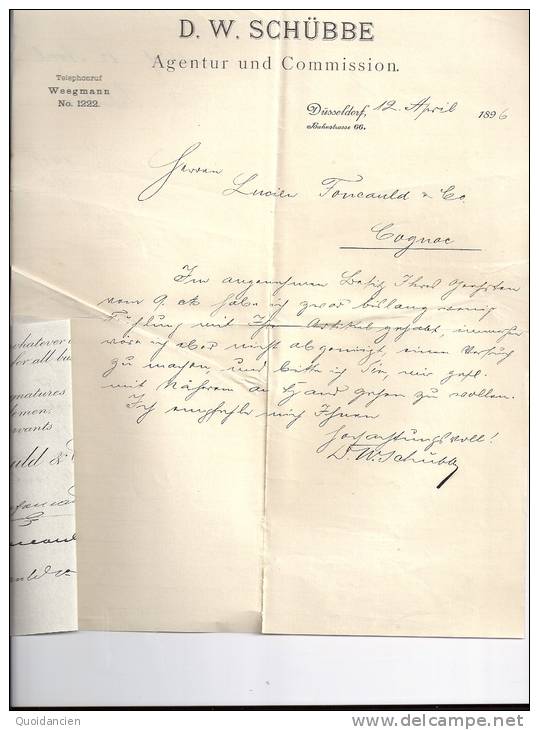 D. W. SCHÜBBE
Agentur und Commission.
Telephonruf
Weegmann
No. 1222.
Düsseldorf, 12. April 1896
Ruhrstrasse 66.
Herren
Lucien Foucauld & Co.
Cognac
Im angenehmen Besitz Ihres Geehrten
vom 9. ct. habe ich zwar bislang wenig
Fühlung mit Ihr Artikel gehabt, immerhin
wäre ich aber nicht abgeneigt, einen Versuch
zu machen, und bitte ich Sie, mir gefl.
mit Näherem an Hand gehen zu wollen.
Ich empfehle mich Ihnen
hochachtungsvoll!
D. W. Schübbe
whatever
for all bu
gnatures
lemen,
rvants
uld &
Quoidancien
www.delcampe.net